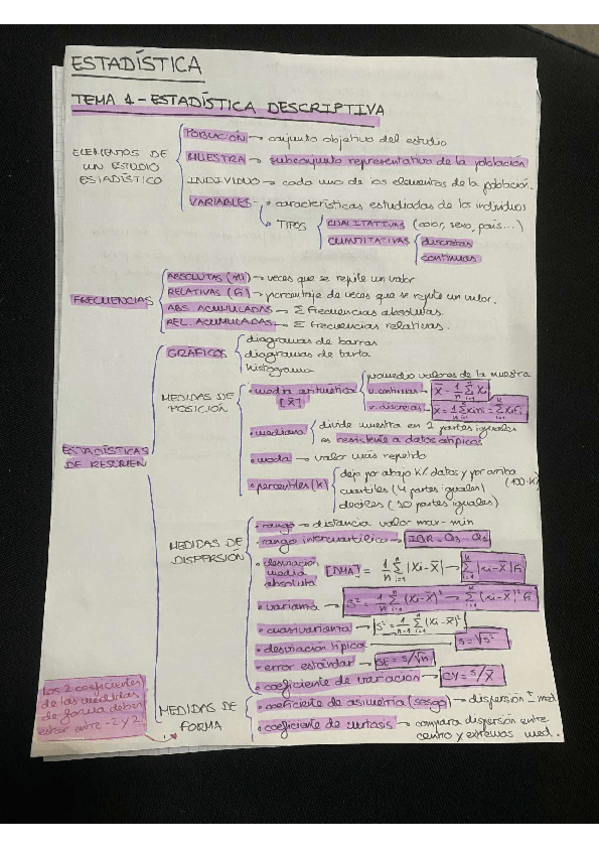 ESTADÍSTICA
TEMA 1 - ESTADÍSTICA DESCRIPTIVA
ELEMENTOS DE UN ESTUDIO ESTADÍSTICO
POBLACIÓN → conjunto objetivo del estudio
MUESTRA → subconjunto representativo de la población
INDIVIDUO → cada uno de los elementos de la población.
VARIABLES → características estudiadas de los individuos
TIPOS
CUALITATIVAS (color, sexo, país...)
CUANTITATIVAS
discretas
continuas
FRECUENCIAS
ABSOLUTAS (ni) → veces que se repite un valor
RELATIVAS (fi) → porcentaje de veces que se repite un valor.
ABS. ACUMULADAS → Σ frecuencias absolutas.
REL. ACUMULADAS → Σ frecuencias relativas.
ESTADÍSTICAS DE RESUMEN
GRÁFICOS
diagramas de barras
diagramas de tarta
histograma
MEDIDAS DE POSICIÓN
• media aritmética [x̄]
promedio valores de la muestra
v. continuas → x̄ = 1/n Σ xi
v. discretas → x̄ = 1/n Σ xi ni = Σ xi fi
• mediana
divide muestra en 2 partes iguales
es resistente a datos atípicos
• moda → valor más repetido
• percentiles (k)
deja por abajo k% datos y por arriba (100-k)
cuartiles (4 partes iguales)
deciles (10 partes iguales)
MEDIDAS DE DISPERSIÓN
• rango → distancia valor max-min
• rango intercuartílico → IQR = Q3 - Q1
• desviación media absoluta [DMA] = 1/n Σ |xi - x̄| → Σ |xi - x̄| fi
• varianza → S² = 1/n Σ (xi - x̄)² → Σ (xi - x̄)² fi
• cuasivarianza → S² = 1/n-1 Σ (xi - x̄)²
• desviación típica → S = √S²
• error estándar → SE = S/√n
• coeficiente de variación → CV = S/x̄
MEDIDAS DE FORMA
• coeficiente de asimetría (sesgo) → dispersión ± med
• coeficiente de curtosis → compara dispersión entre
centro y extremos med.
Los 2 coeficientes
de las medidas
de forma deben
estar entre -2 y 2